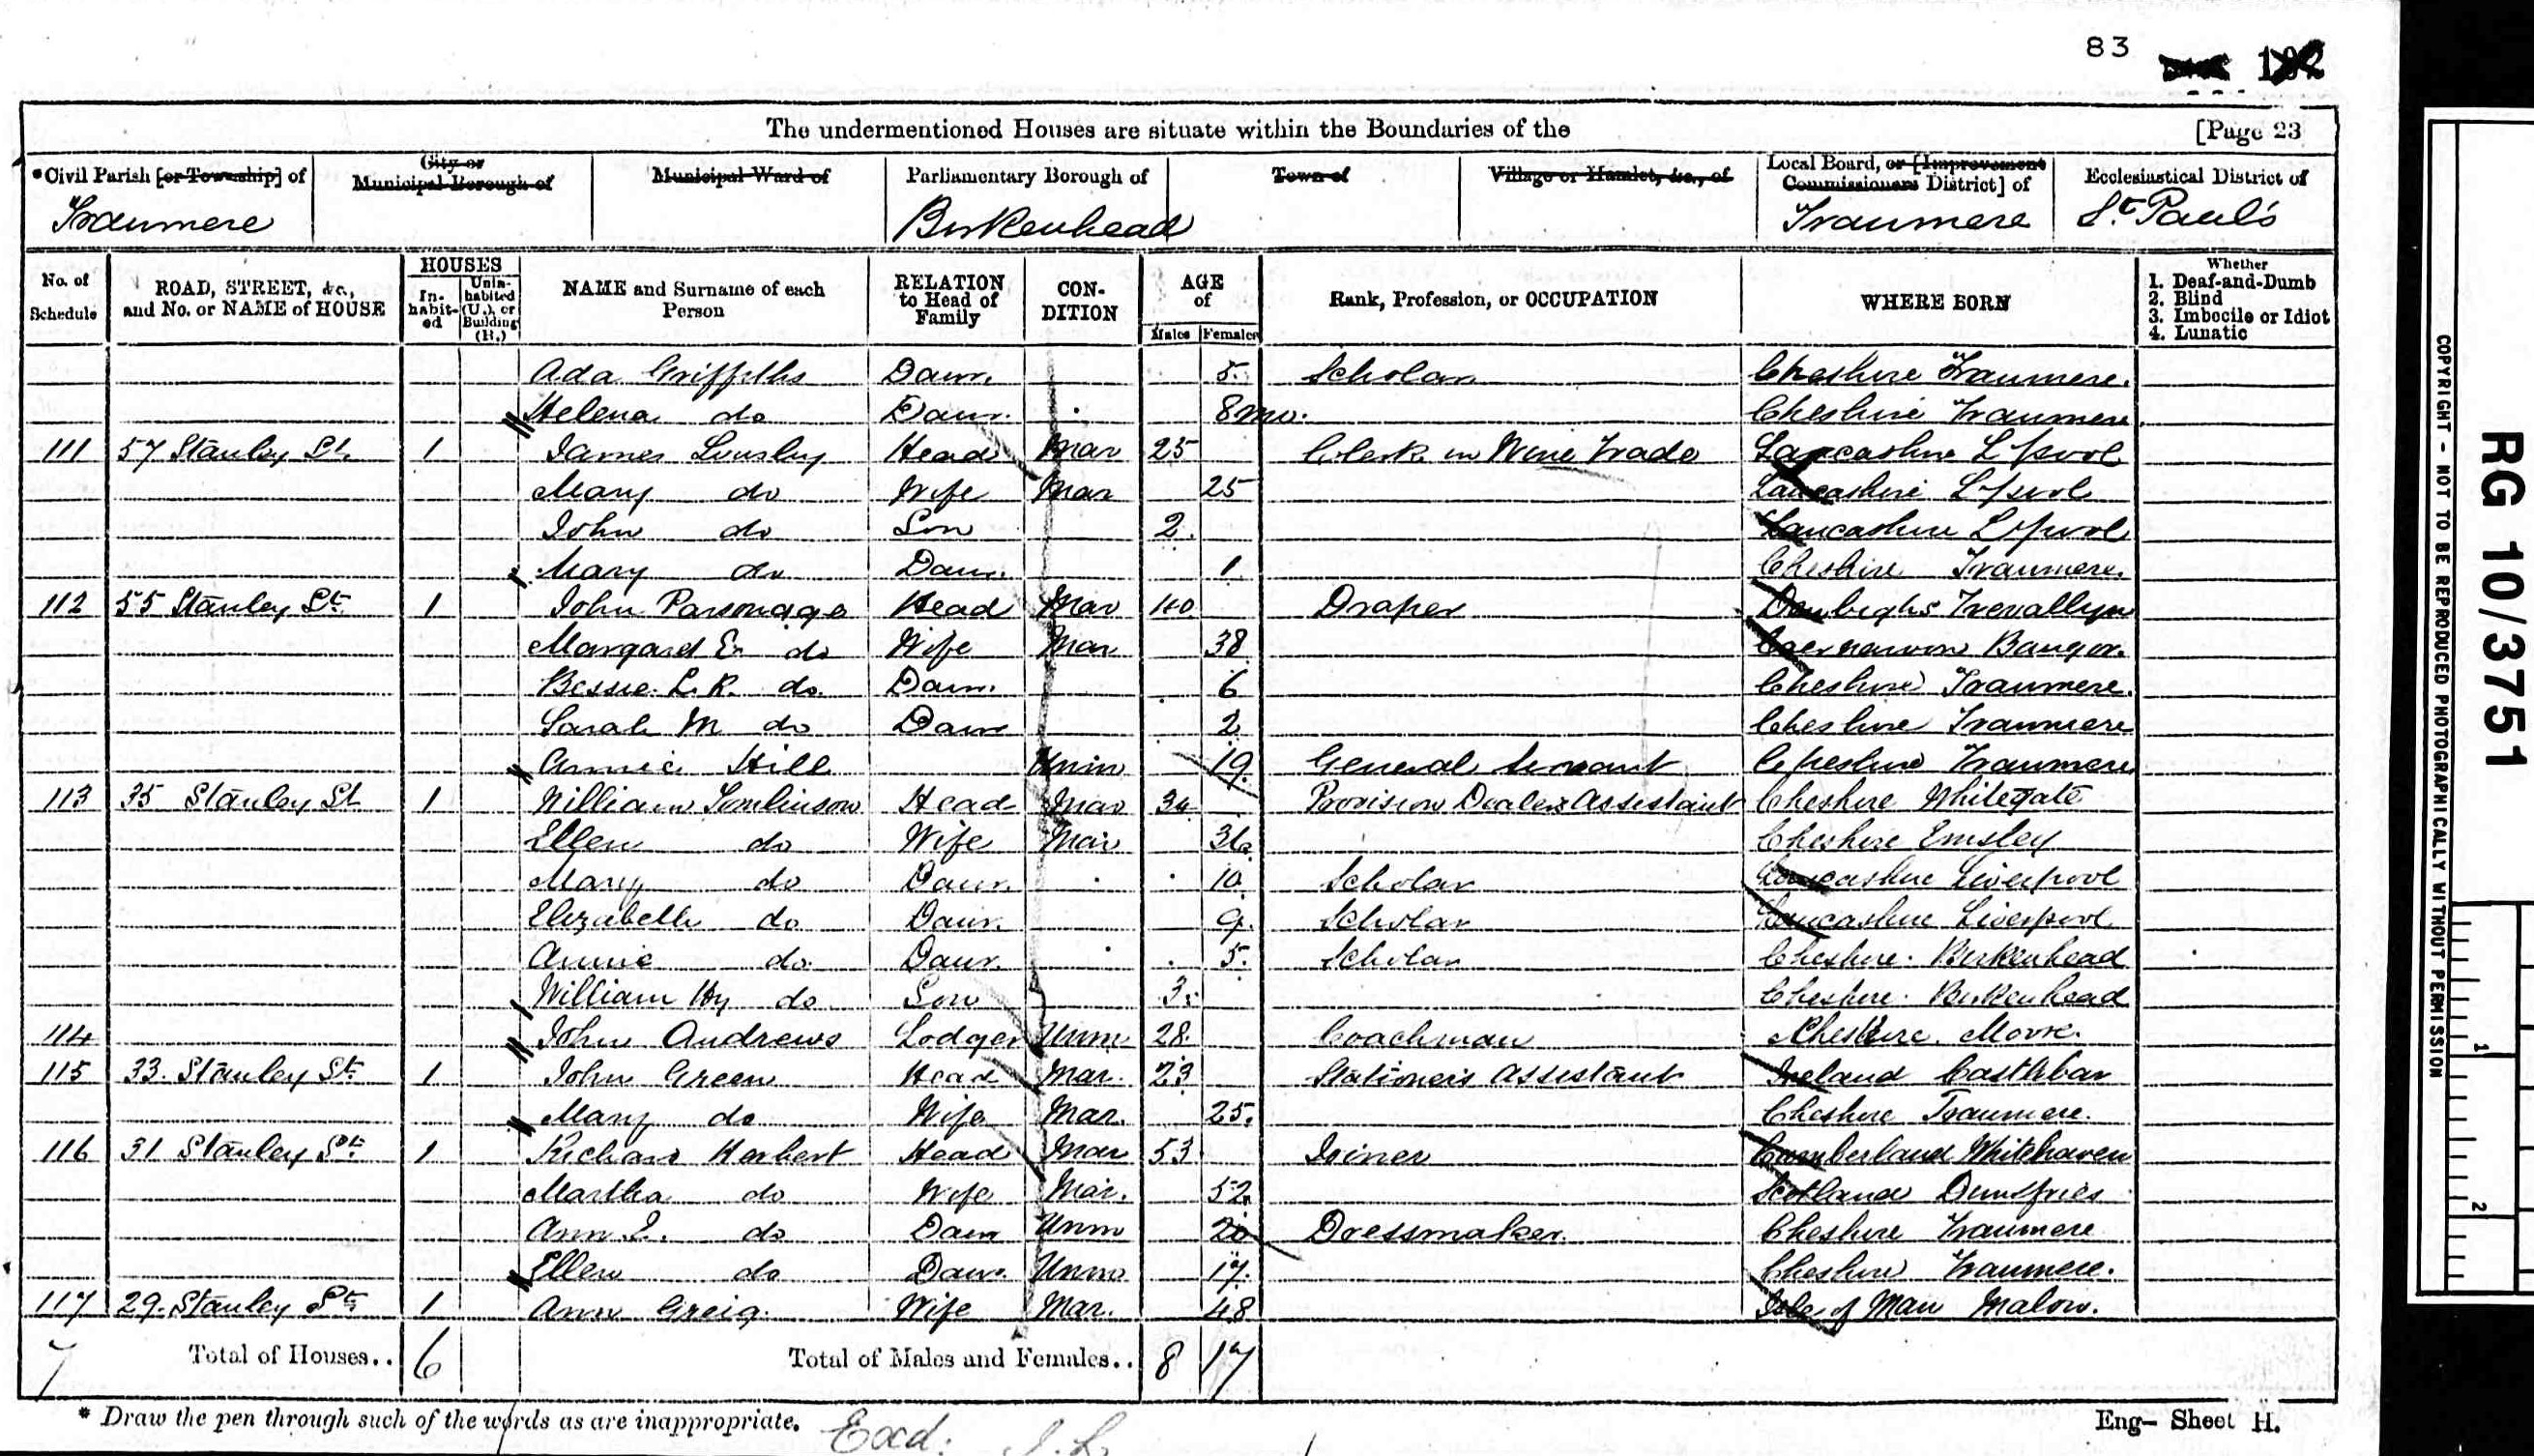 83 102
The undermentioned Houses are situate within the Boundaries of the [Page 23
*Civil Parish [or Township] of Tranmere
City or Municipal Borough of
Municipal Ward of
Parliamentary Borough of Birkenhead
Town of
Village or Hamlet, &c., of
Local Board, or [Improvement Commissioners District] of Tranmere
Ecclesiastical District of St. Paul's
No. of Schedule
ROAD, STREET, &c., and No. or NAME of HOUSE
HOUSES
In-habit-ed
Unin-habited (U.), or Building (B.)
NAME and Surname of each Person
RELATION to Head of Family
CON-DITION
AGE of
Males Females
Rank, Profession, or OCCUPATION
WHERE BORN
Whether
1. Deaf-and-Dumb
2. Blind
3. Imbecile or Idiot
4. Lunatic
Ada Griffiths Daur. 5 Scholar Cheshire Tranmere.
Helena do Daur. 8 mo. Cheshire Tranmere.
111 57 Stanley St. 1 James Head Mar 25 Clerk in Wine Trade Lancashire L'pool
Mary do Wife Mar 25 Lancashire L'pool
John do Son 2 Lancashire L'pool
Mary do Daur. 1 Cheshire Tranmere.
112 55 Stanley St. 1 John Parsonage Head Mar 40 Draper Denbighs Trevallyn
Margaret E. do Wife Mar 38 Caernarvon Bangor.
Bessie L. R. do. Daur. 6 Cheshire Tranmere.
Sarah M do Daur 2 Cheshire Tranmere
Annie Hill Unm 19 General Servant Cheshire Tranmere
113 35 Stanley St 1 William Tomlinson Head Mar 34 Provision Dealers Assistant Cheshire Whitegate
Ellen do Wife Mar 36 Cheshire Emsley
Mary do Daur. 10 Scholar Lancashire Liverpool
Elizabeth do Daur. 9 Scholar Lancashire Liverpool
Annie do. Daur. 5 Scholar Cheshire. Birkenhead
William Hy do Son 3 Cheshire. Birkenhead
114 John Andrews Lodger Unm 28 Coachman Cheshire. Moore.
115 33. Stanley St. 1 John Green Head Mar. 23 Stationers Assistant Ireland Castlebar
Mary do Wife Mar. 25. Cheshire Tranmere.
116 31 Stanley St. 1 Richard Herbert Head Mar 53 Joiner Cumberland Whitehaven
Martha do Wife Mar. 52 Scotland Dumfries
Ann E. do Daur Unm 20 Dressmaker. Cheshire Tranmere
Ellen do Daur. Unm 17. Cheshire Tranmere.
117 29. Stanley St. 1 Ann Greig. Wife Mar. 48 Isle of Man Malow.
7 Total of Houses.. 6 Total of Males and Females.. 8 17
* Draw the pen through such of the words as are inappropriate. Eng- Sheet H.
Exd:
RG 10/3751
COPYRIGHT - NOT TO BE REPRODUCED PHOTOGRAPHICALLY WITHOUT PERMISSION
1
2